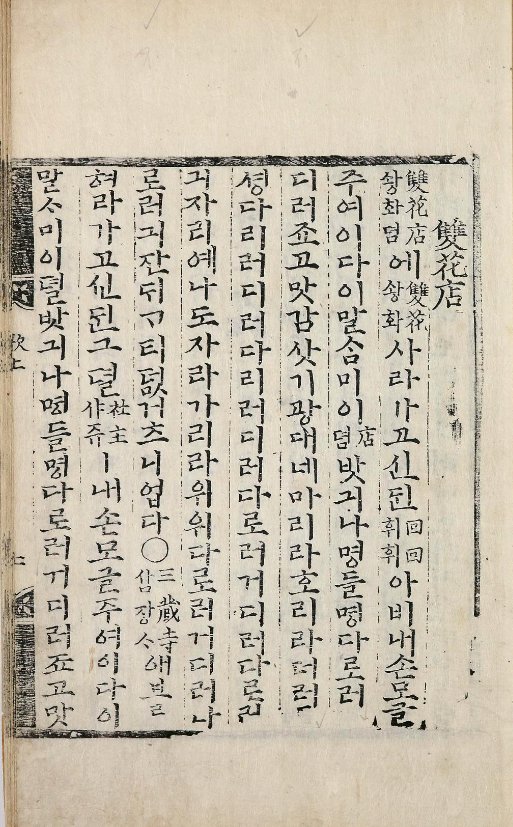 雙花店
雙花店솽화뎜에雙花솽화사라가고신ᄃᆡᆫ回回휘휘아비내손모글
주여이다이말ᄉᆞᆷ미이店뎜밧긔나명들명다로러
디러죠고맛감삿기광대네마리라호리라더러
셩다리러디러다리러디러다로러거디러다로러
긔자리예나도자라가리라위위다로러거디러다
로러긔잔ᄃᆡᄀᆞ티덦거츠니업다○三藏寺삼장ᄉᆞ애브를
혀라가고신ᄃᆡᆫ그뎔社主샤쥬ㅣ내손모글주여이다이
말ᄉᆞ미이뎔밧긔나명들명다로러거디러죠고맛